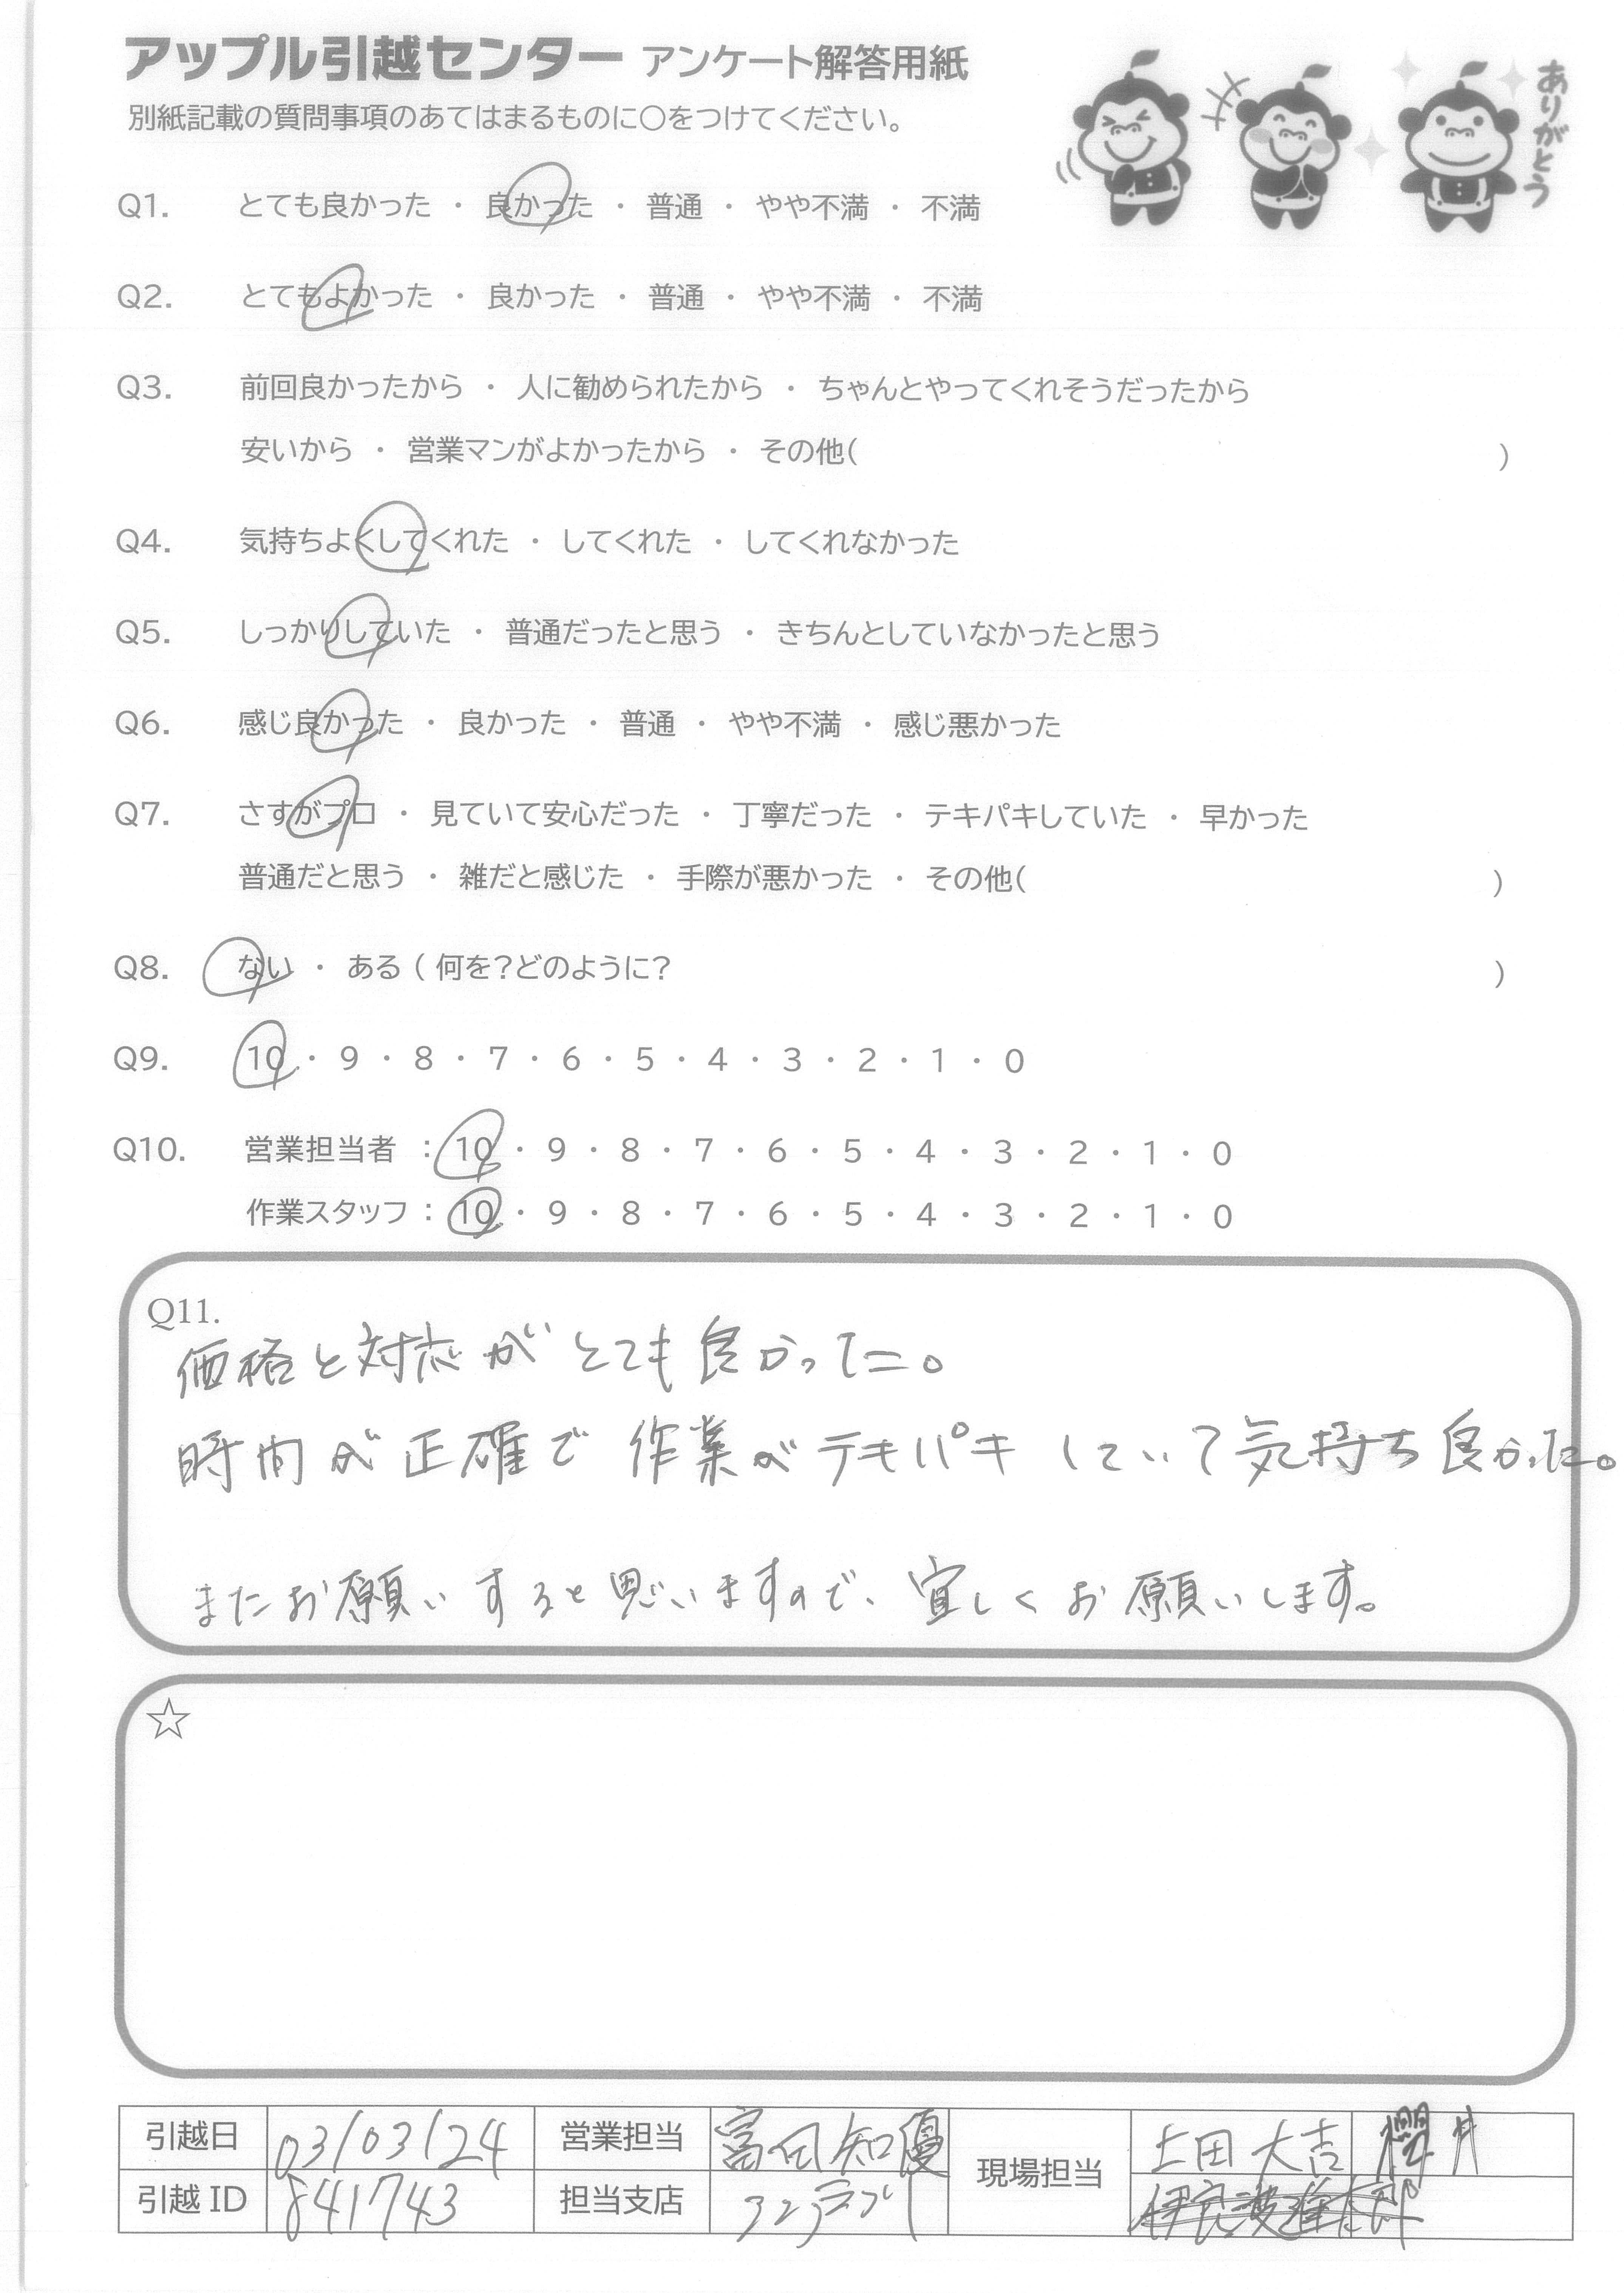 アップル引越センター アンケート解答用紙
別紙記載の質問事項のあてはまるものに○をつけてください。
ありがとう
Q1. とても良かった ・ 良かった ・ 普通 ・ やや不満 ・ 不満
Q2. とてもよかった ・ 良かった ・ 普通 ・ やや不満 ・ 不満
Q3. 前回良かったから ・ 人に勧められたから ・ ちゃんとやってくれそうだったから
安いから ・ 営業マンがよかったから ・ その他( )
Q4. 気持ちよくしてくれた ・ してくれた ・ してくれなかった
Q5. しっかりしていた ・ 普通だったと思う ・ きちんとしていなかったと思う
Q6. 感じ良かった ・ 良かった ・ 普通 ・ やや不満 ・ 感じ悪かった
Q7. さすがプロ ・ 見ていて安心だった ・ 丁寧だった ・ テキパキしていた ・ 早かった
普通だと思う ・ 雑だと感じた ・ 手際が悪かった ・ その他( )
Q8. ない ・ ある ( 何を?どのように? )
Q9. 10 ・ 9 ・ 8 ・ 7 ・ 6 ・ 5 ・ 4 ・ 3 ・ 2 ・ 1 ・ 0
Q10. 営業担当者 : 10 ・ 9 ・ 8 ・ 7 ・ 6 ・ 5 ・ 4 ・ 3 ・ 2 ・ 1 ・ 0
作業スタッフ : 10 ・ 9 ・ 8 ・ 7 ・ 6 ・ 5 ・ 4 ・ 3 ・ 2 ・ 1 ・ 0
Q11.
価格と対応がとても良かった。
時間が正確で作業がテキパキしていて気持ち良かった。
またお願いすると思いますので、宜しくお願いします。
☆
引越日 03/03/24 営業担当 富田知優 現場担当 上田大吉 櫻井
引越ID 841743 担当支店